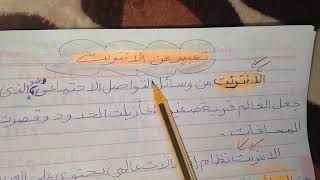 تعبير عن الانترنت
الانترنت من وسائل التواصل الاجتماعي الذي
جعل العالم قرية صغيرة فأزيلت الحدود وقصرت
المسافات.
الانترنت نظام اتصالات عالمي يحتوي على